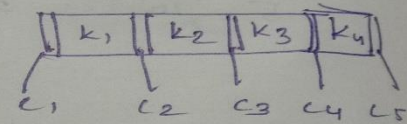 K1 K2 K3 K4
C1 C2 C3 C4 C5